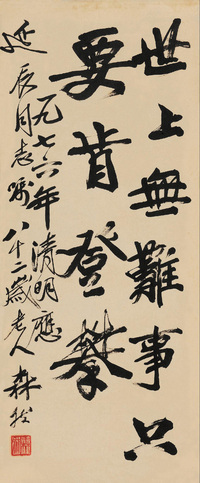 世上無難事只
要肯登攀
一九七六年清明應
延辰同志囑 八十二歲老人森然